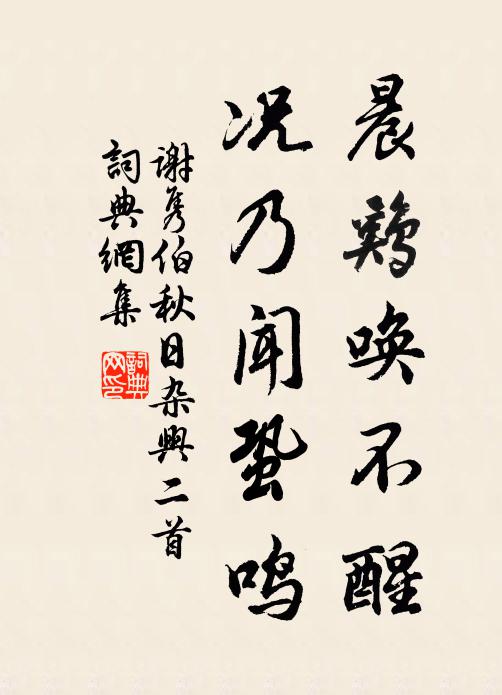 晨鷄唤不醒
况乃闻蛩鸣
谢隽伯秋日杂興二首
詞典網集
詞典网印